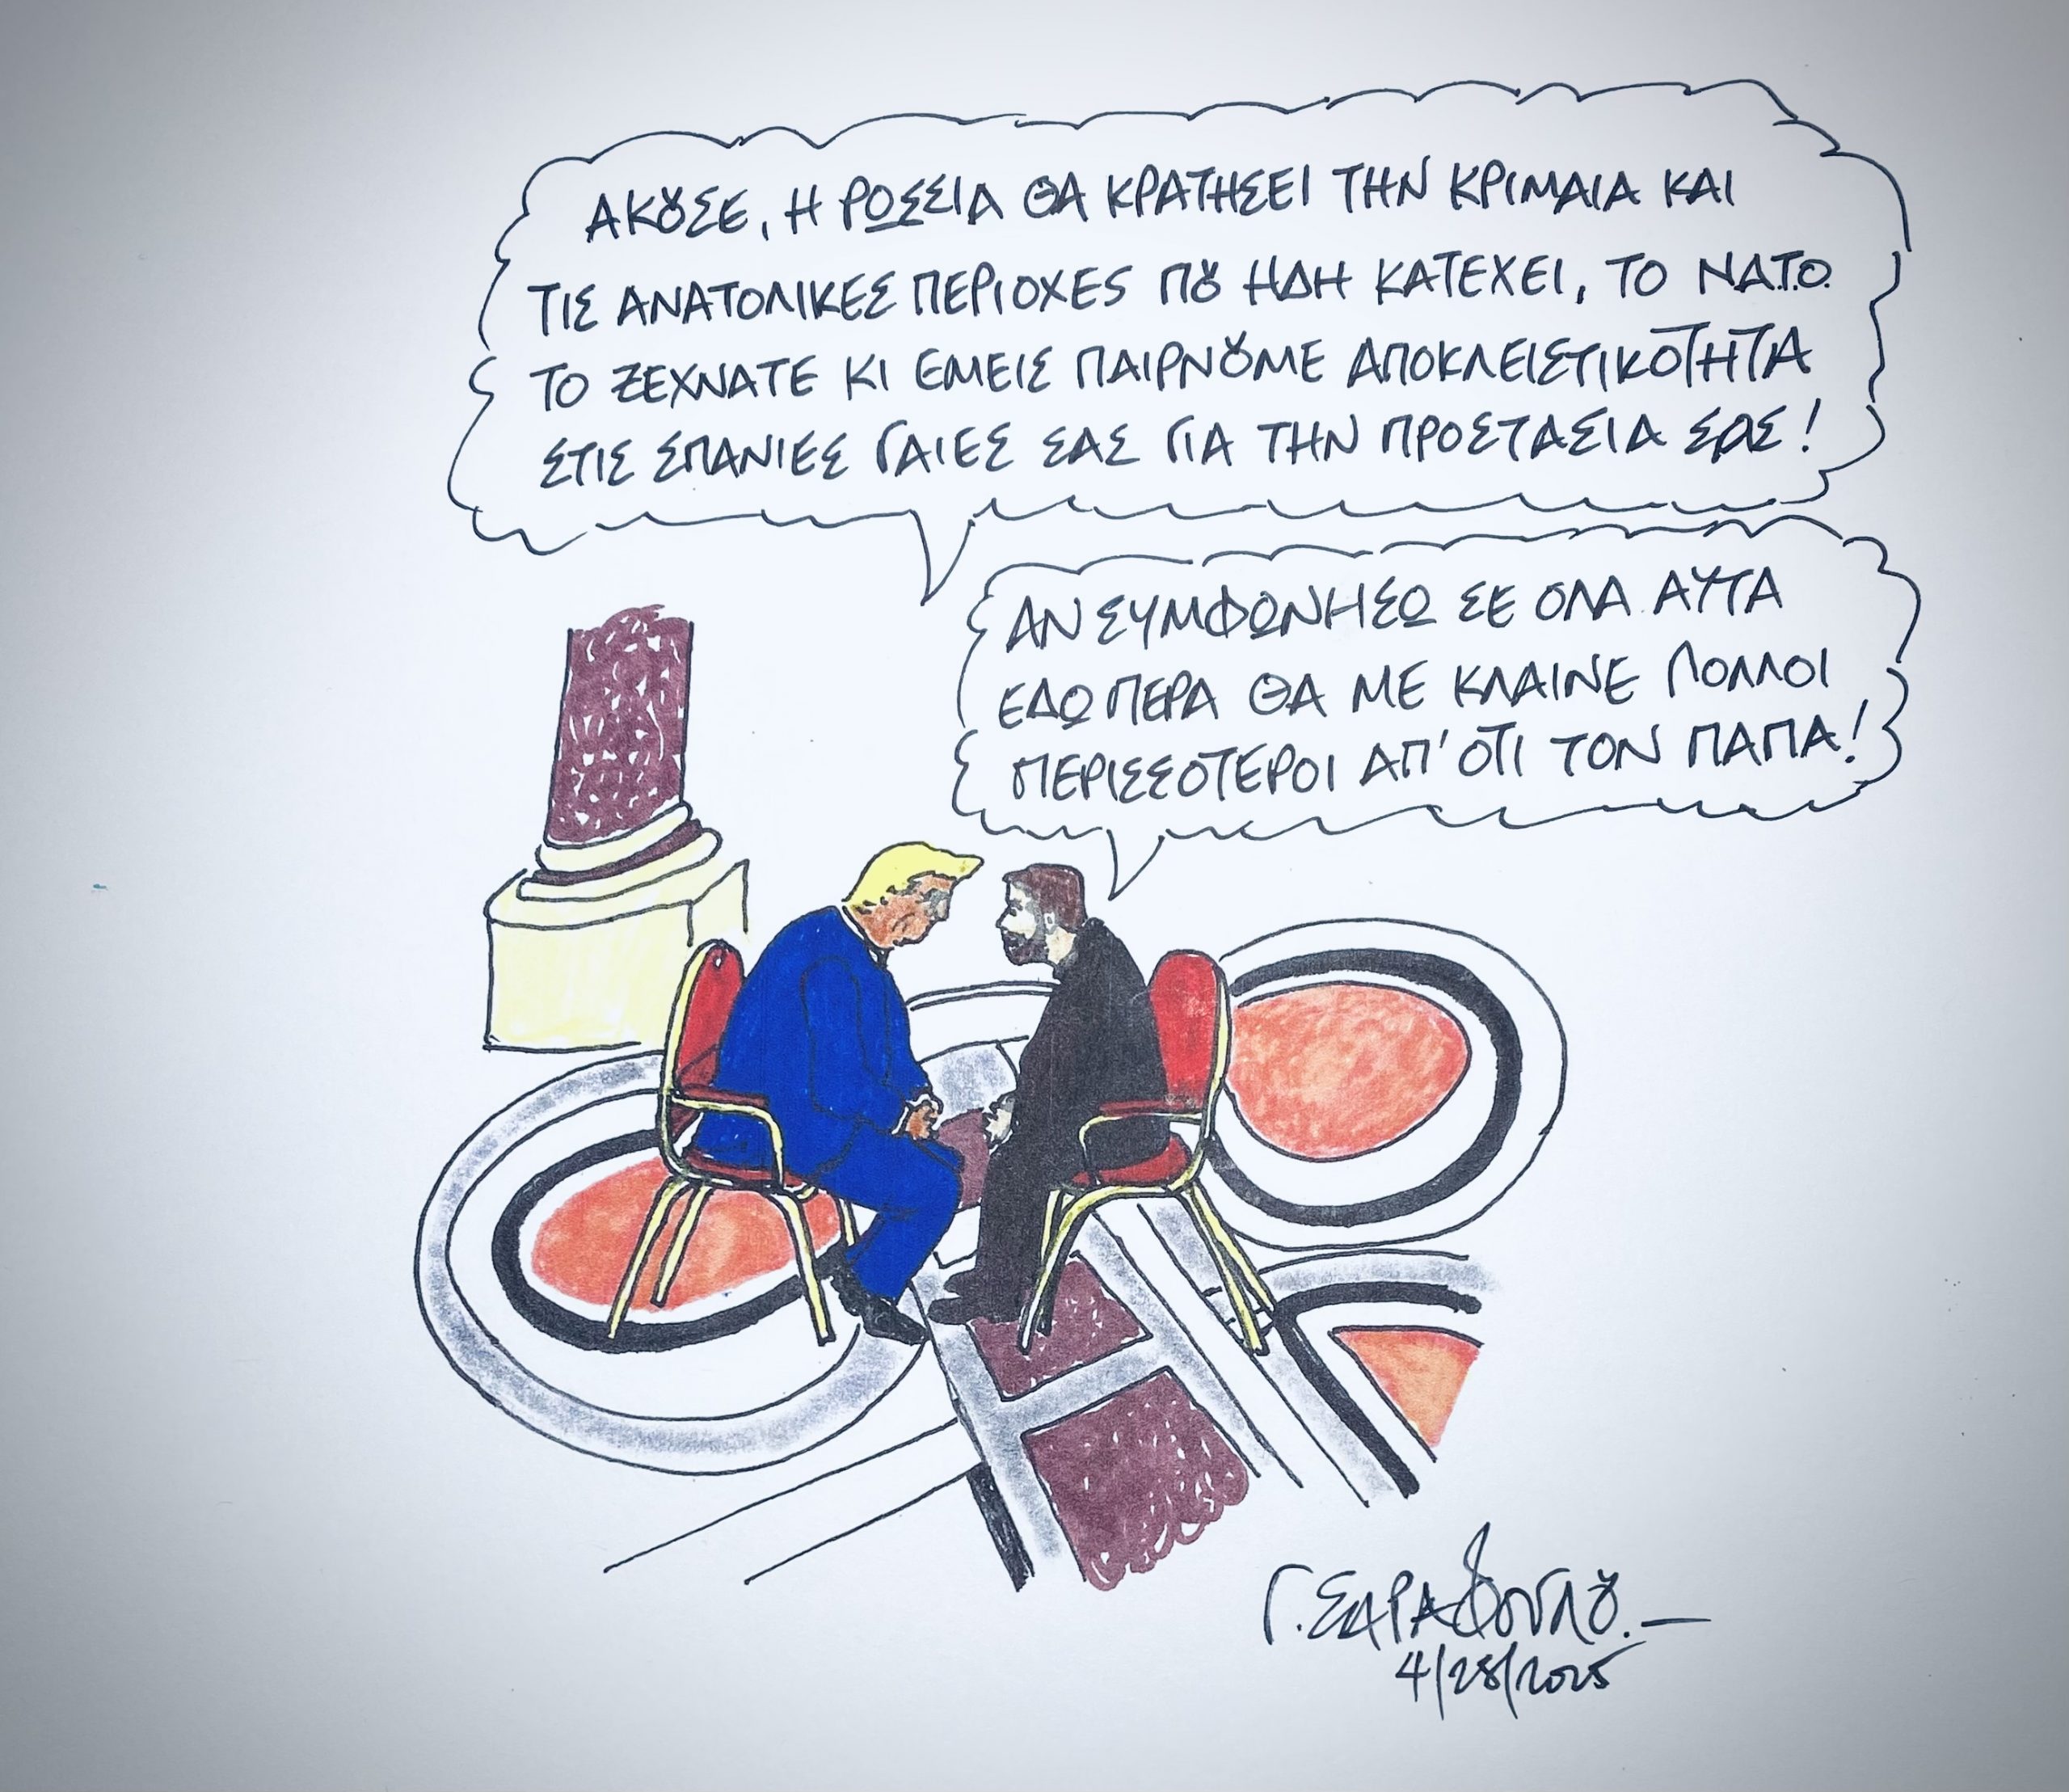 ΑΚȢΣΕ, Η ΡΩΣΣΙΑ ΘΑ ΚΡΑΤΗΣΕΙ ΤΗΝ ΚΡΙΜΑΙΑ ΚΑΙ
ΤΙΣ ΑΝΑΤΟΛΙΚΕΣ ΠΕΡΙΟΧΕΣ ΠȢ ΗΔΗ ΚΑΤΕΧΕΙ, ΤΟ Ν.Α.Τ.Ο.
ΤΟ ΞΕΧΝΑΤΕ ΚΙ ΕΜΕΙΣ ΠΑΙΡΝȢΜΕ ΑΠΟΚΛΕΙΣΤΙΚΟΤΗΤΑ
ΣΤΙΣ ΣΠΑΝΙΕΣ ΓΑΙΕΣ ΣΑΣ ΓΙΑ ΤΗΝ ΠΡΟΣΤΑΣΙΑ ΣΑΣ!
ΑΝ ΣΥΜΦΩΝΗΣΩ ΣΕ ΟΛΑ ΑΥΤΑ
ΕΔΩ ΠΕΡΑ ΘΑ ΜΕ ΚΛΑΙΝΕ ΠΟΛΛΟΙ
ΠΕΡΙΣΣΟΤΕΡΟΙ ΑΠ' ΟΤΙ ΤΟΝ ΠΑΠΑ!
Γ. ΣΑΡΑΦΟΓΛȢ.—
4/28/2025